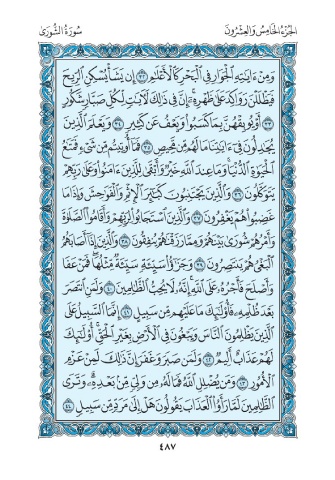 الجُزْءُ الخَامِسُ وَالعِشْرُونَ
سُورَةُ الشُّورَىٰ
وَمِنْ ءَايَٰتِهِ ٱلْجَوَارِ فِى ٱلْبَحْرِ كَٱلْأَعْلَٰمِ ٣٢ إِن يَشَأْ يُسْكِنِ ٱلرِّيحَ
فَيَظْلَلْنَ رَوَاكِدَ عَلَىٰ ظَهْرِهِۦٓ إِنَّ فِى ذَٰلِكَ لَءَايَٰتٍ لِّكُلِّ صَبَّارٍ شَكُورٍ
٣٣ أَوْ يُوبِقْهُنَّ بِمَا كَسَبُوا۟ وَيَعْفُ عَن كَثِيرٍ ٣٤ وَيَعْلَمَ ٱلَّذِينَ
يُجَٰدِلُونَ فِىٓ ءَايَٰتِنَا مَا لَهُم مِّن مَّحِيصٍ ٣٥ فَمَآ أُوتِيتُم مِّن شَىْءٍ فَمَتَٰعُ
ٱلْحَيَوٰةِ ٱلدُّنْيَا وَمَا عِندَ ٱللَّهِ خَيْرٌ وَأَبْقَىٰ لِلَّذِينَ ءَامَنُوا۟ وَعَلَىٰ رَبِّهِمْ
يَتَوَكَّلُونَ ٣٦ وَٱلَّذِينَ يَجْتَنِبُونَ كَبَٰٓئِرَ ٱلْإِثْمِ وَٱلْفَوَٰحِشَ وَإِذَا مَا
غَضِبُوا۟ هُمْ يَغْفِرُونَ ٣٧ وَٱلَّذِينَ ٱسْتَجَابُوا۟ لِرَبِّهِمْ وَأَقَامُوا۟ ٱلصَّلَوٰةَ
وَأَمْرُهُمْ شُورَىٰ بَيْنَهُمْ وَمِمَّا رَزَقْنَٰهُمْ يُنفِقُونَ ٣٨ وَٱلَّذِينَ إِذَآ أَصَابَهُمُ
ٱلْبَغْىُ هُمْ يَنتَصِرُونَ ٣٩ وَجَزَٰٓؤُا۟ سَيِّئَةٍ سَيِّئَةٌ مِّثْلُهَا فَمَنْ عَفَا
وَأَصْلَحَ فَأَجْرُهُۥ عَلَى ٱللَّهِ إِنَّهُۥ لَا يُحِبُّ ٱلظَّٰلِمِينَ ٤٠ وَلَمَنِ ٱنتَصَرَ
بَعْدَ ظُلْمِهِۦ فَأُو۟لَٰٓئِكَ مَا عَلَيْهِم مِّن سَبِيلٍ ٤١ إِنَّمَا ٱلسَّبِيلُ عَلَى
ٱلَّذِينَ يَظْلِمُونَ ٱلنَّاسَ وَيَبْغُونَ فِى ٱلْأَرْضِ بِغَيْرِ ٱلْحَقِّ أُو۟لَٰٓئِكَ
لَهُمْ عَذَابٌ أَلِيمٌ ٤٢ وَلَمَن صَبَرَ وَغَفَرَ إِنَّ ذَٰلِكَ لَمِنْ عَزْمِ
ٱلْأُمُورِ ٤٣ وَمَن يُضْلِلِ ٱللَّهُ فَمَا لَهُۥ مِن وَلِىٍّ مِّنۢ بَعْدِهِۦ وَتَرَى
ٱلظَّٰلِمِينَ لَمَّا رَأَوُا۟ ٱلْعَذَابَ يَقُولُونَ هَلْ إِلَىٰ مَرَدٍّ مِّن سَبِيلٍ ٤٤
٤٨٧